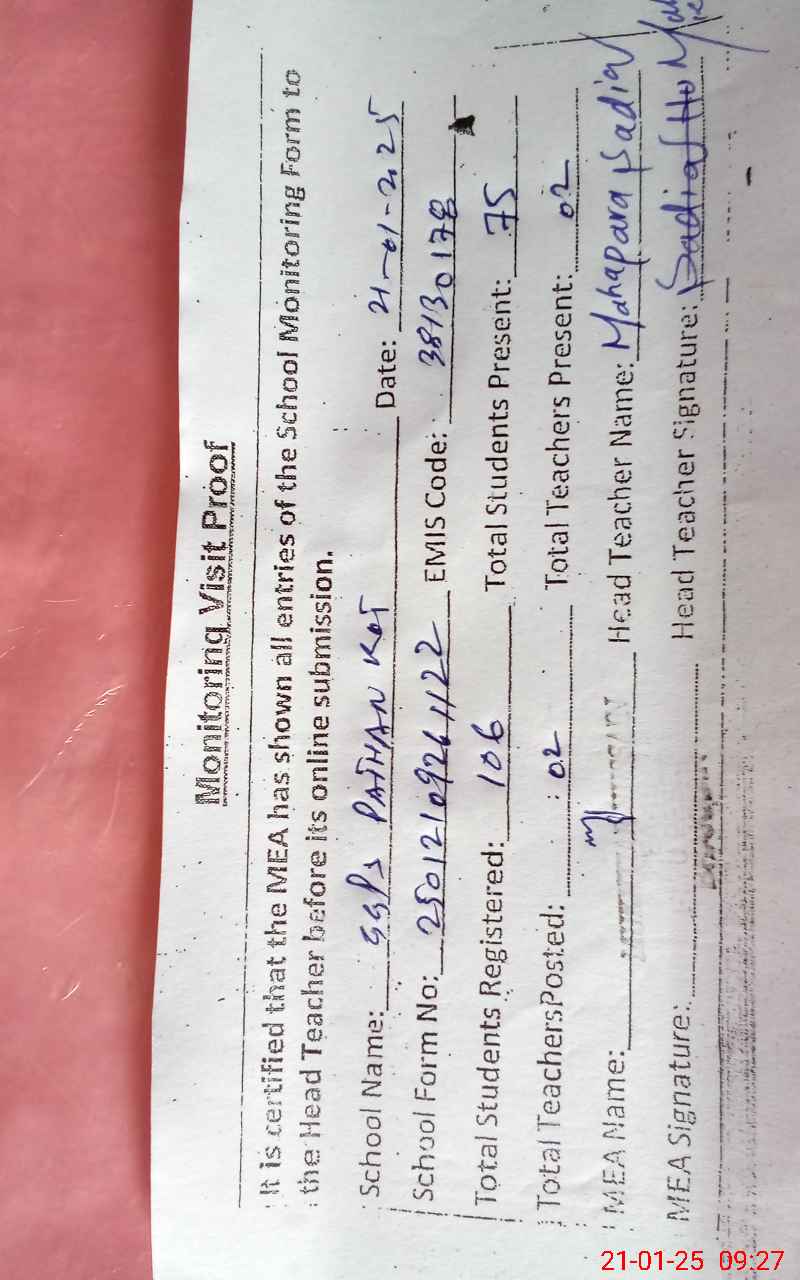 Monitoring Visit Proof
It is certified that the MEA has shown all entries of the School Monitoring Form to
the Head Teacher before its online submission.
School Name: GGPS PATHAN KOT Date: 21-01-2025
School Form No: 25012109261122 EMIS Code: 38130178
Total Students Registered: 106 Total Students Present: 75
Total TeachersPosted: 02 Total Teachers Present: 02
MEA Name: Head Teacher Name: Mahapara Sadia
MEA Signature: Head Teacher Signature: Sadia
21-01-25 09:27